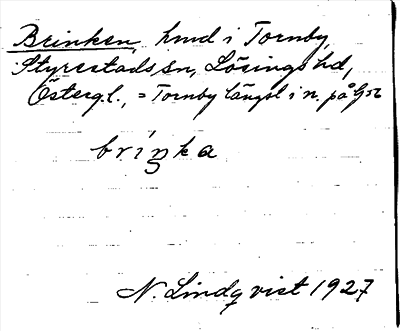 Brinken, hmd i Tornby,
Styrestads sn, Lösings hd,
Österg.l., = Tornby längst i n. på Gsb
briŋka
N. Lindqvist 1927